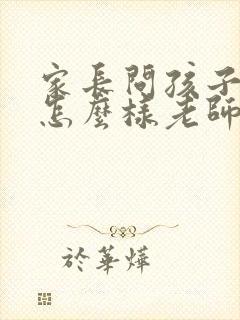 家長問孩子
怎麼樣老師
於華燁